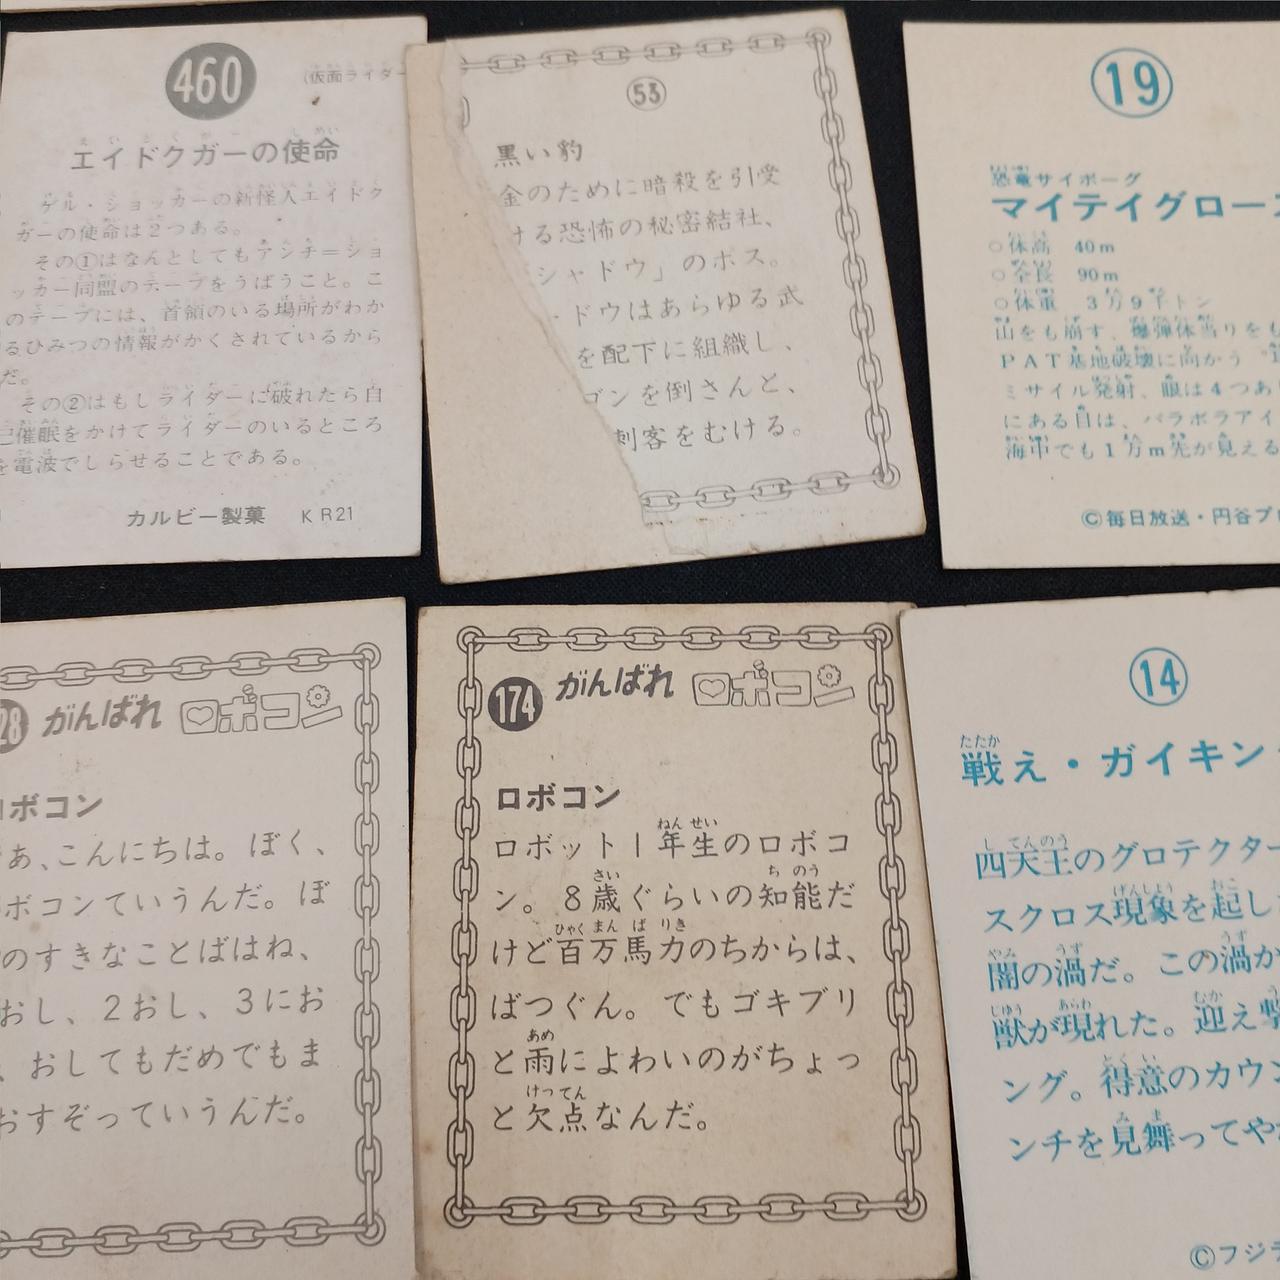 460
(仮面ライダー
エイドクガーの使命
ゲル・ショッカーの新怪人エイドク
ガーの使命は2つある。
その①はなんとしてもアンチ=ショ
ッカー同盟のテープをうばうこと。こ
のテープには、首領のいる場所がわか
るひみつの情報がかくされているから
だ。
その②はもしライダーに破れたら自
己催眠をかけてライダーのいるところ
を電波でしらせることである。
カルビー製菓 KR21
53
黒い豹
金のために暗殺を引受
ける恐怖の秘密結社、
シャドウ」のボス。
ドウはあらゆる武
を配下に組織し、
ゴンを倒さんと、
刺客をむける。
19
恐竜サイボーグ
マイテイグロー
○体高 40m
○全長 90m
○体重 3万9千トン
山をも崩す、爆弾体当りをも
PAT基地破壊に向かう
ミサイル発射、眼は4つあ
にある目は、パラボラアイ
海中でも1万m先が見える
©毎日放送・円谷プロ
28
がんばれ ロボコン
ロボコン
あ、こんにちは。ぼく、
ボコンていうんだ。ぼ
のすきなことばはね、
おし、2おし、3にお
、おしてもだめでもま
おすぞっていうんだ。
174
がんばれ ロボコン
ロボコン
ロボット1年生のロボコ
ン。8歳ぐらいの知能だ
けど百万馬力のちからは、
ばつぐん。でもゴキブリ
と雨によわいのがちょっ
と欠点なんだ。
14
戦え・ガイキン
四天王のグロテクター
スクロス現象を起し
闇の渦だ。この渦か
獣が現れた。迎え撃
ング。得意のカウン
ンチを見舞ってや
©フジテ